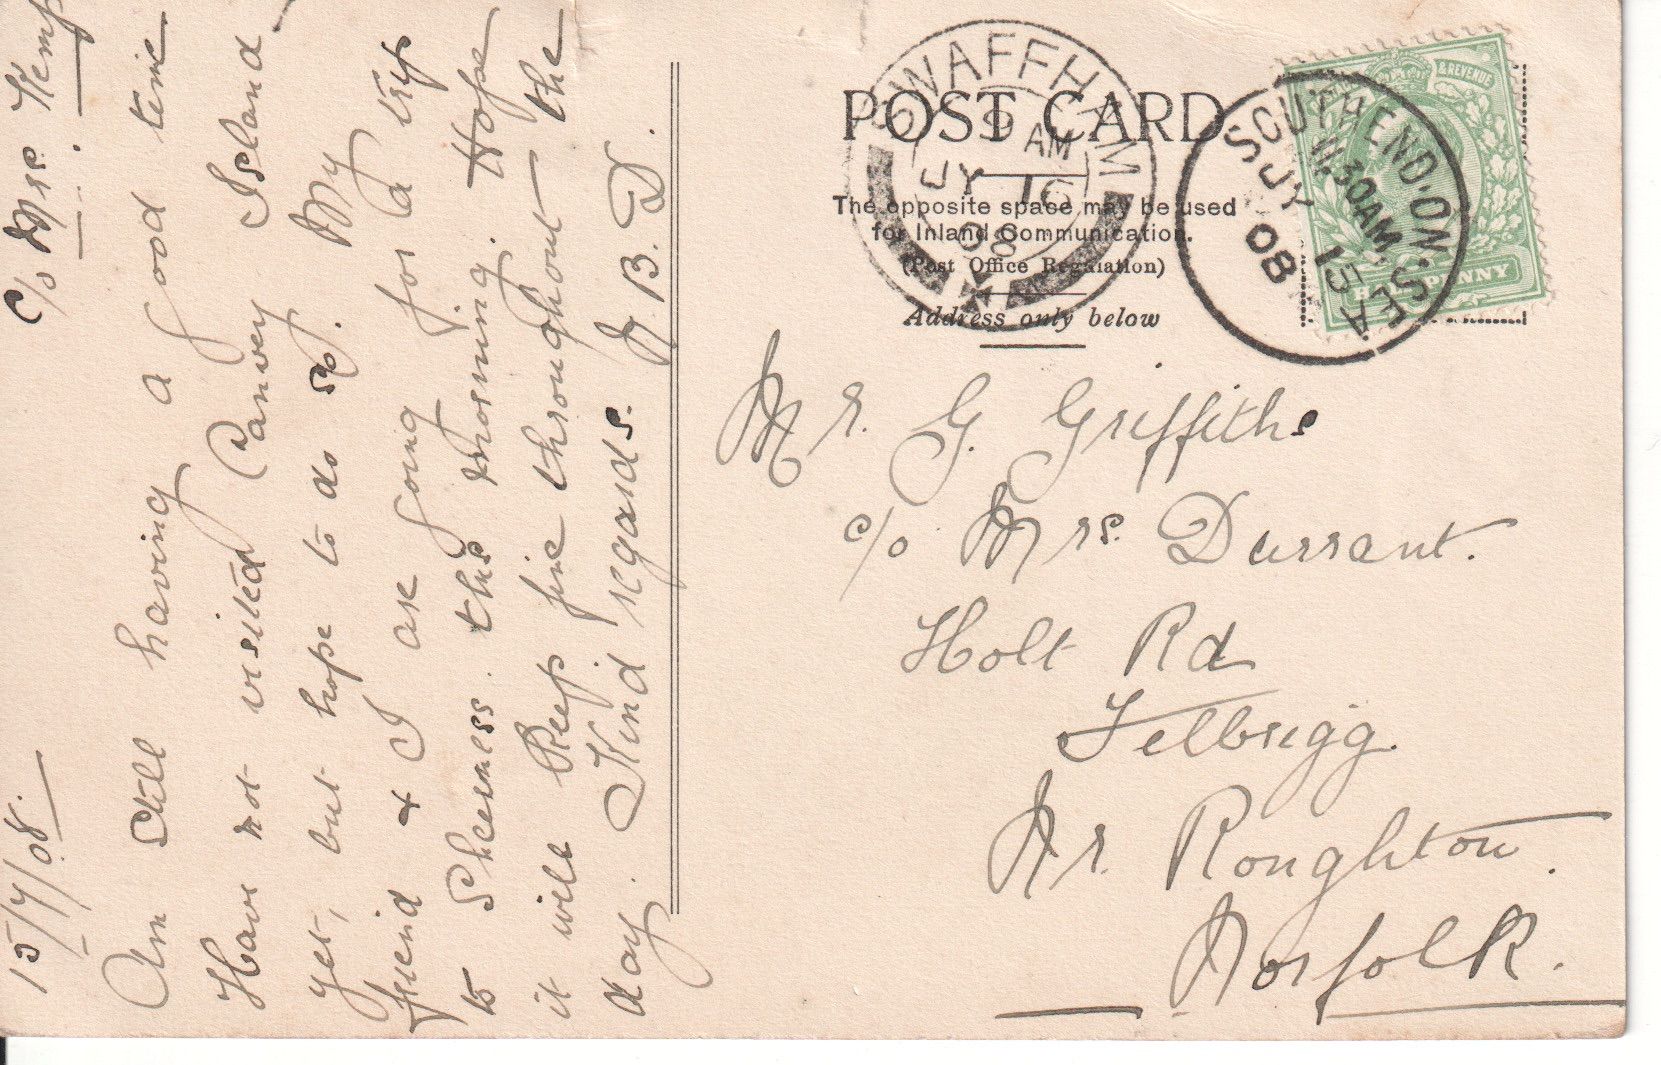 15/7/08.
C/o Mrs. Kemp
Am still having a good time
Have not visited Canvey Island
yet, but hope to do so. My
friend & I are going for a trip
to Sheerness this morning. Hope
it will keep fine throughout the
day. Kind regards. J. B. D.
SWAFFHAM
9 AM
JY 16
08
POST CARD
The opposite space may be used
for Inland Communication.
(Post Office Regulation)
Address only below
SOUTHEND.ON.SEA
30AM.
JY 15
08
S
& REVENUE
HALFPENNY
Mr. G. Griffiths
c/o Mrs. Durrant.
Holt Rd
Felbrigg.
Nr. Roughton.
Norfolk.